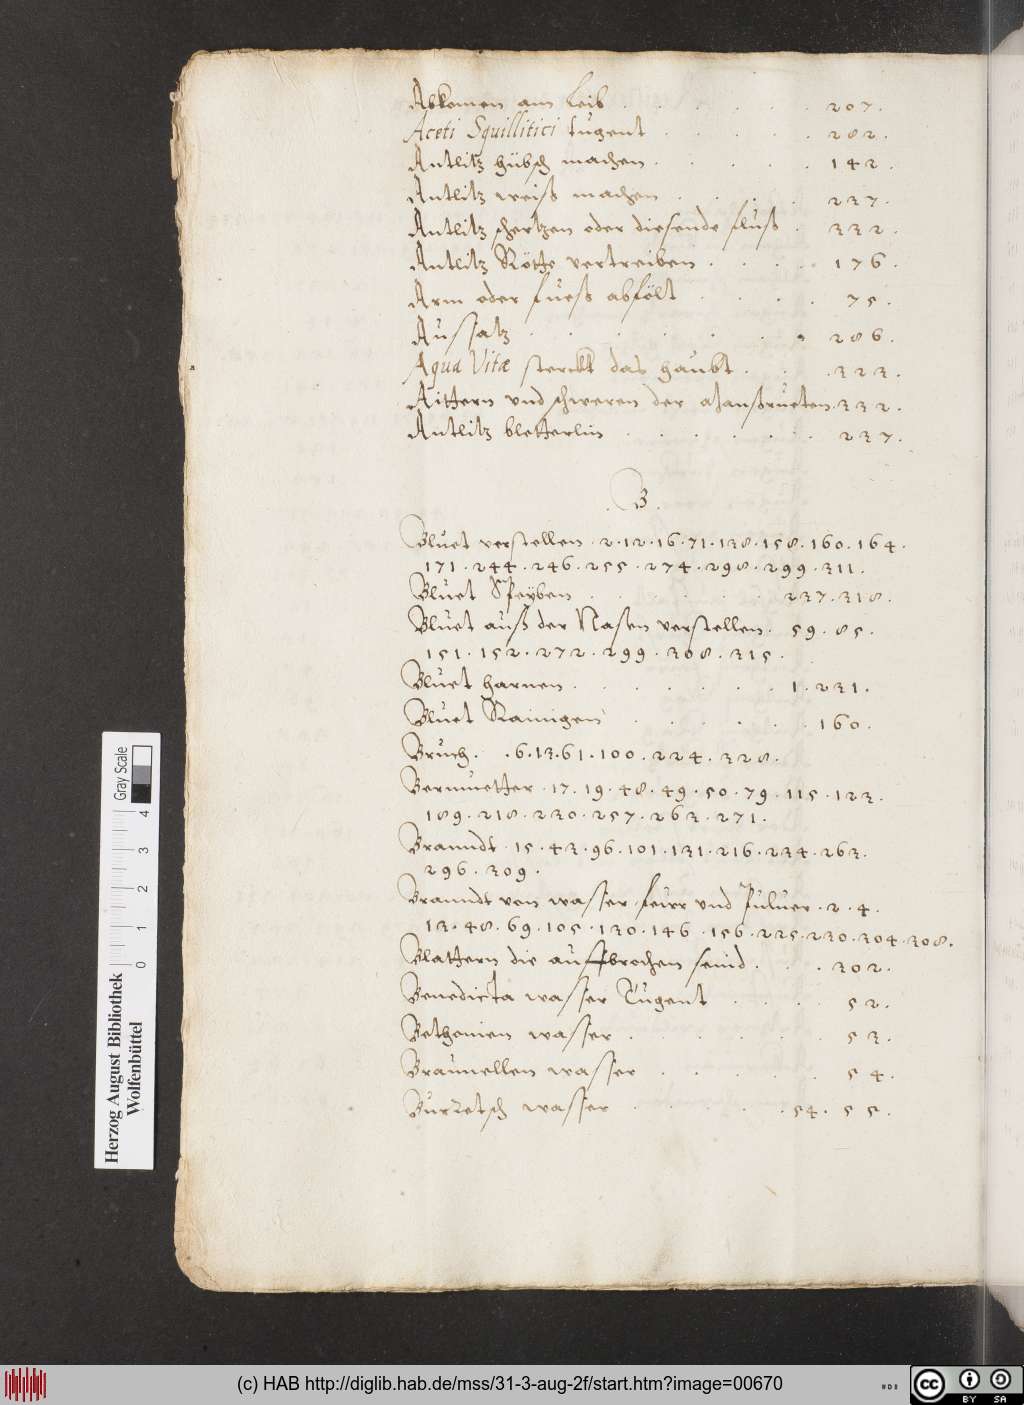 Abkomen am Leib . . . . . . 207.
Aceti Squillitici tugent . . . . . 282.
Antlitz hübsch machen . . . . . 142.
Antlitz weiß machen . . . . . 237.
Antlitz schertzen oder diesende fluß . 332.
Antlitz Rötte vertreiben . . . . 176.
Arm oder fueß abfölt . . . . 75.
Aussatz . . . . . . . 286.
Aqua Vitæ sterckt das haubt . . . 323.
Aittern und schweren der 332.
Antlitz bletterlin . . . . . . 237.
. B .
Bluet verstellen . 2. 12. 16. 71. 138. 158. 160. 164.
171. 244. 246. 255. 274. 298. 299. 311.
Bluet Speyben . . . . . . 237. 318.
Bluet auß der Nasen verstellen. 59. 85.
151. 152. 272. 299. 308. 315.
Bluet harnen . . . . . . 1. 231.
Bluet Rainigen . . . . . . 160.
Bruch. . 6. 13. 61. 100. 224. 328.
Bermuetter . 17. 19. 48. 49. 50. 79. 115. 123.
189. 218. 230. 257. 263. 271.
Branndt . 15. 43. 96. 101. 131. 216. 234. 263.
296. 309.
Branndt von wasser feurr und Puluer. 2. 4.
13. 48. 69. 105. 130. 146. 156. 225. 230. 304. 308.
Blattern die auffbrochen seind . . . 302.
Benedicta wasser Tugent . . . 52.
Bethonien wasser . . . . . . 53.
Braunellen wasser . . . . . 54.
Burretsch wasser . . . . . 54. 55.
Herzog August Bibliothek
Wolfenbüttel
0 1 2 3 4
Gray Scale
(c) HAB http://diglib.hab.de/mss/31-3-aug-2f/start.htm?image=00670
cc BY SA